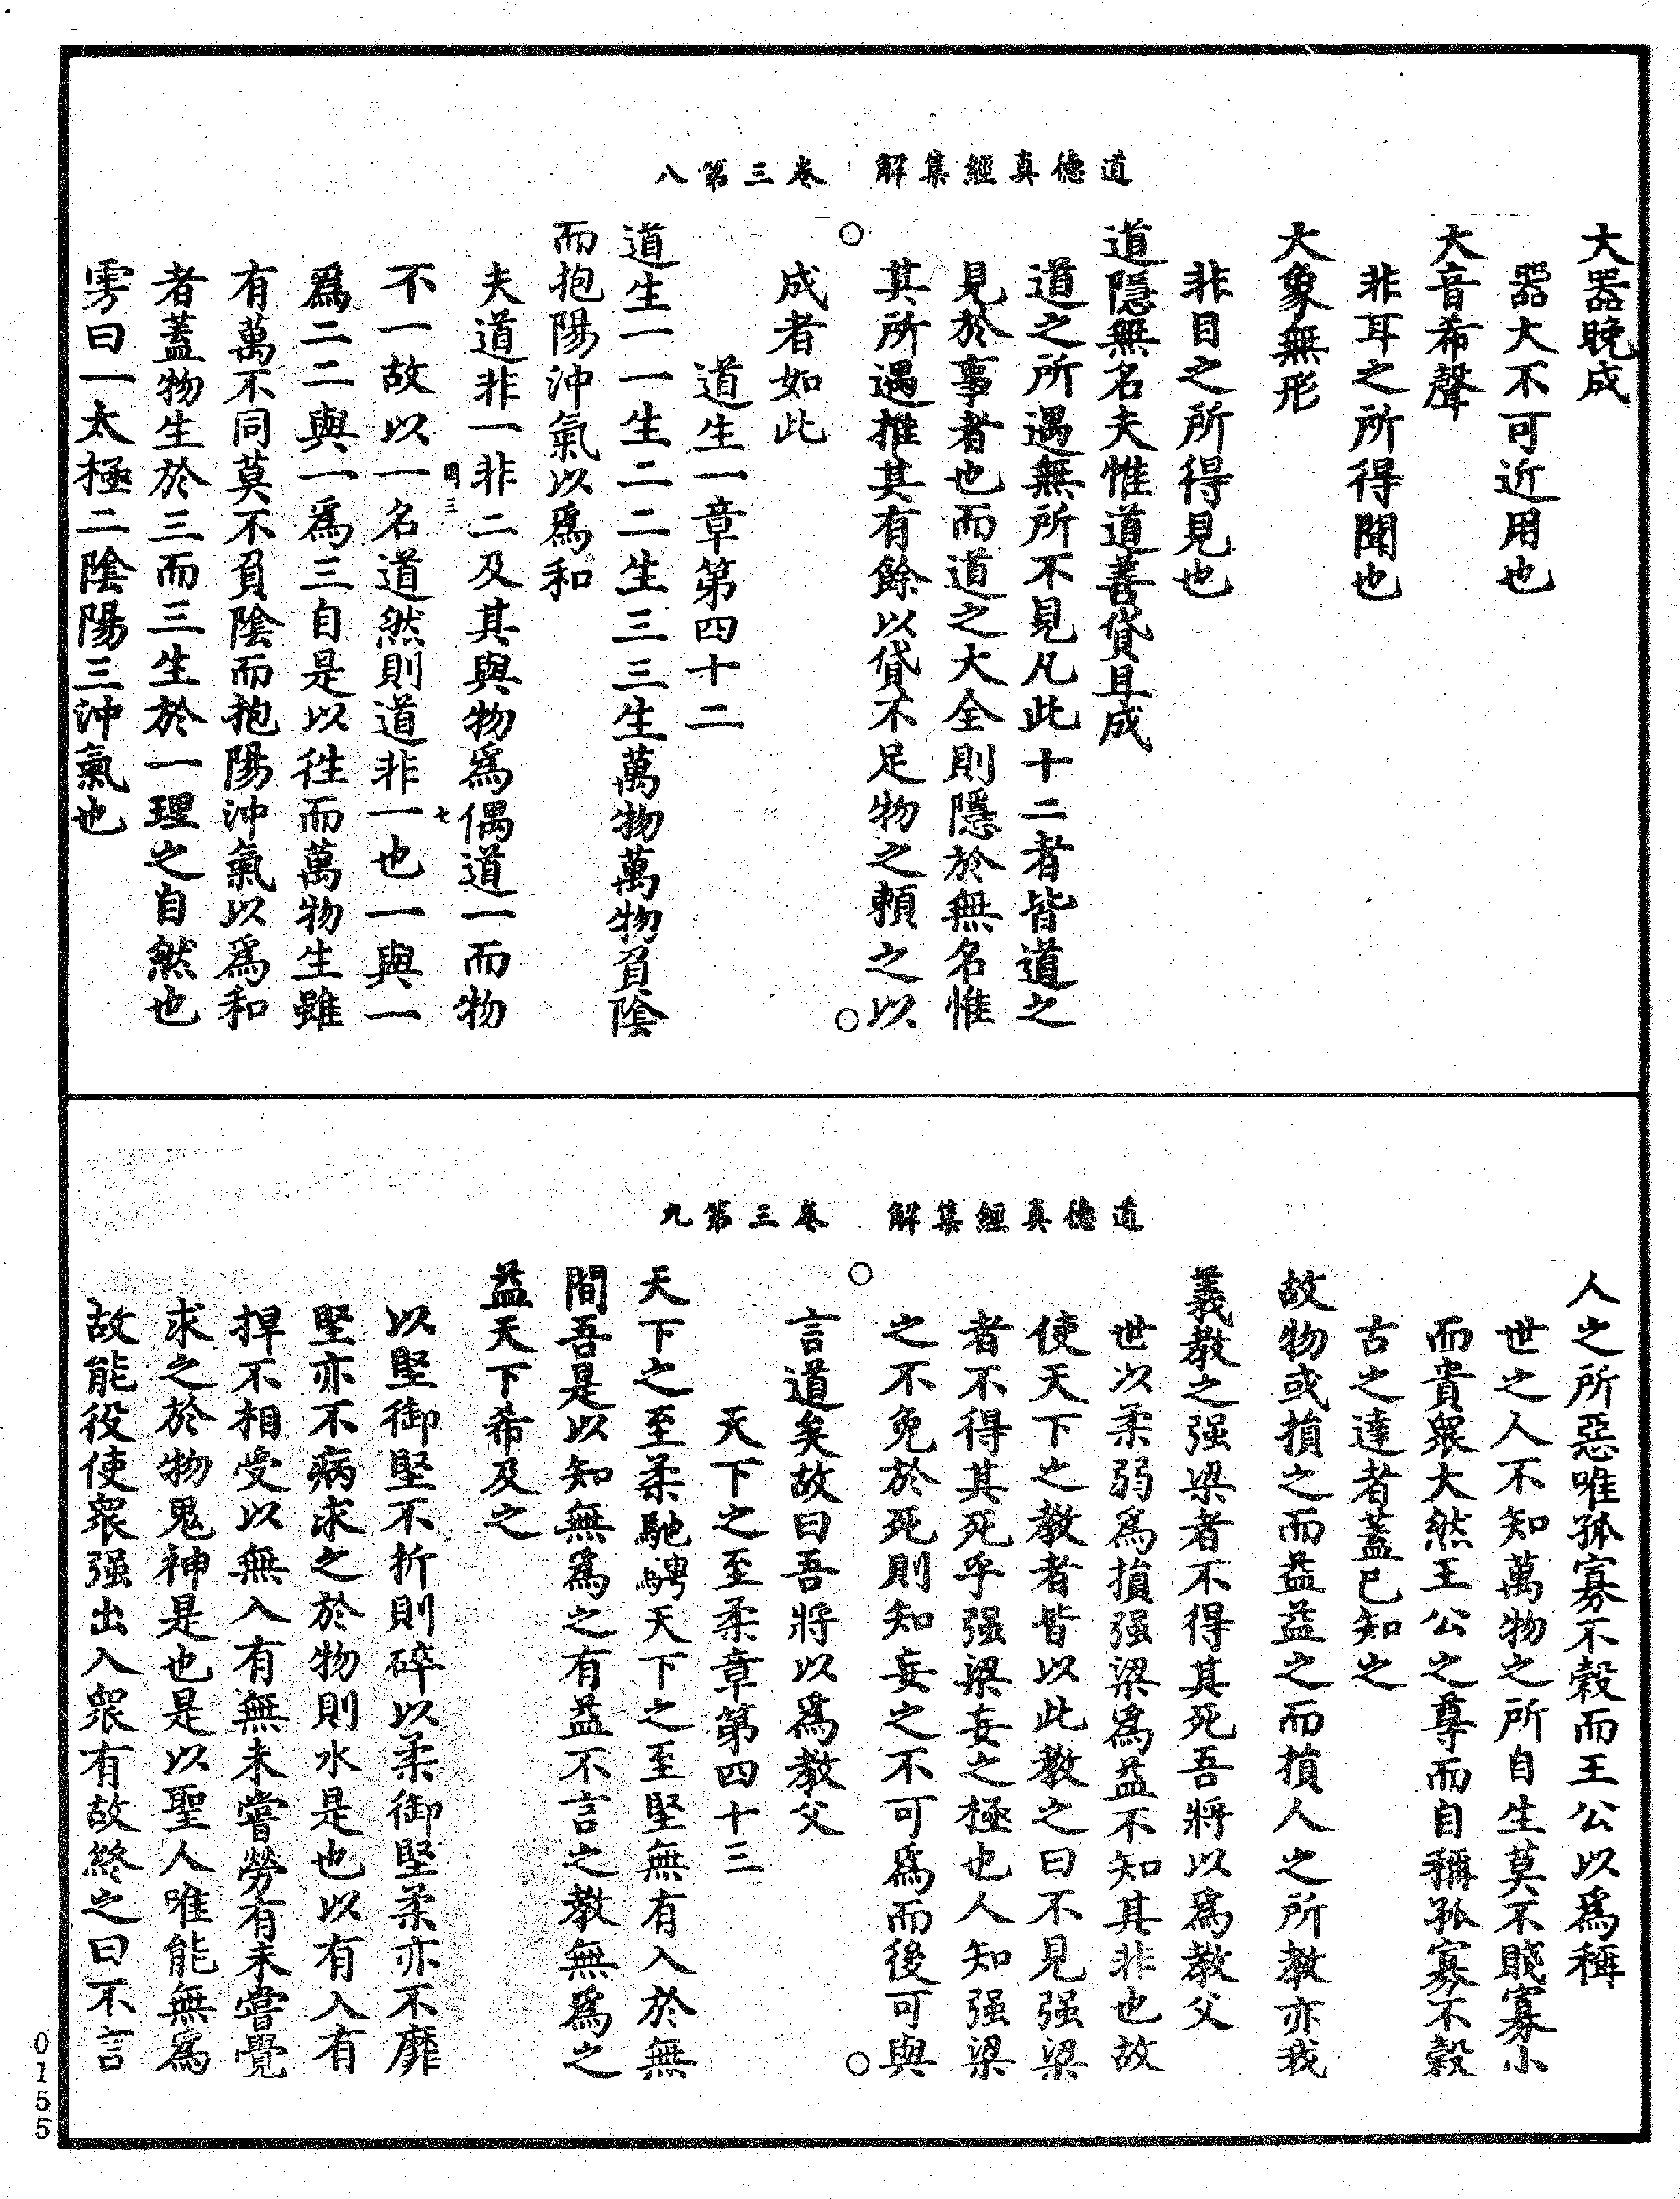 道德真經集解　卷三第八
大器晚成
器大不可近用也
大音希聲
非耳之所得聞也
大象無形
非目之所得見也
道隱無名夫惟道善貸且成
道之所遇無所不見凡此十二者皆道之
見於事者也而道之大全則隱於無名惟
其所遇推其有餘以貸不足物之賴之以
成者如此
道生一章第四十二
道生一一生二二生三三生萬物萬物負陰
而抱陽沖氣以爲和
夫道非一非二及其與物爲偶道一而物
不一故以一名道然則道非一也一與一
爲二二與一爲三自是以往而萬物生雖
有萬不同莫不負陰而抱陽沖氣以爲和
者蓋物生於三而三生於一理之自然也
雱曰一太極二陰陽三沖氣也
七
道德真經集解　卷三第九
人之所惡唯孤寡不穀而王公以爲稱
世之人不知萬物之所自生莫不賤寡小
而貴衆大然王公之尊而自稱孤寡不穀
古之達者蓋已知之
故物或損之而益益之而損人之所教亦我
義教之强梁者不得其死吾將以爲教父
世以柔弱爲損强梁爲益不知其非也故
使天下之教者皆以此教之曰不見强梁
者不得其死乎强梁妄之極也人知强梁
之不免於死則知妄之不可爲而後可與
言道矣故曰吾將以爲教父
天下之至柔章第四十三
天下之至柔馳騁天下之至堅無有入於無
間吾是以知無爲之有益不言之教無爲之
益天下希及之
以堅御堅不折則碎以柔御堅柔亦不靡
堅亦不病求之於物則水是也以有入有
捍不相受以無入有無未嘗勞有未嘗覺
求之於物鬼神是也是以聖人唯能無爲
故能役使衆强出入衆有故終之曰不言
0155